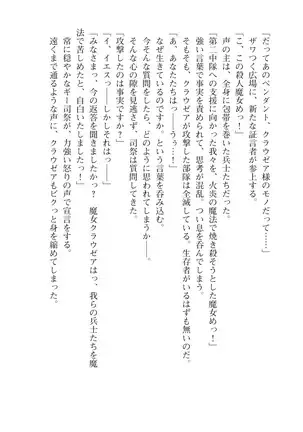 「だってあのペンダント、クラウゼア様のモノだって……」
ザワつく広場に、新たな証言者が参上する。
「こ、この殺人魔女めっ！」
声の主は、全身に包帯を巻いた兵士たちだった。
「第二中隊への支援に向かった我々を、火炎の魔法で焼き殺そうとした魔女め！」
強い言葉で事実を責められて、思考が混乱。つい息を呑んでしまう。
そもそも、クラウゼアが攻撃した部隊は全滅している。生存者がいるはずも無いのだ。
「あ、あなたたちはっ――うぅ…！」
なぜ生きているのですか。という言葉を呑み込む。
今そんな質問をしたら、どのように思われてしまうか――。
そんな心の隙を見逃さず、司祭は質問してきた。
「攻撃したのは事実ですか？」
「い、イエスっ――しかしそれはっ――」
「みなさまっ、今の返答を聞きましたかっ？　魔女クラウゼアはっ、我らの兵士たちを魔
法で苦しめたと、自白いたしましたっ！」
常に穏やかなギー司祭が、力強い怒りの声で宣言をする。
遠くまで通るような声に、クラウゼアもビクっと身を縮めてしまった。